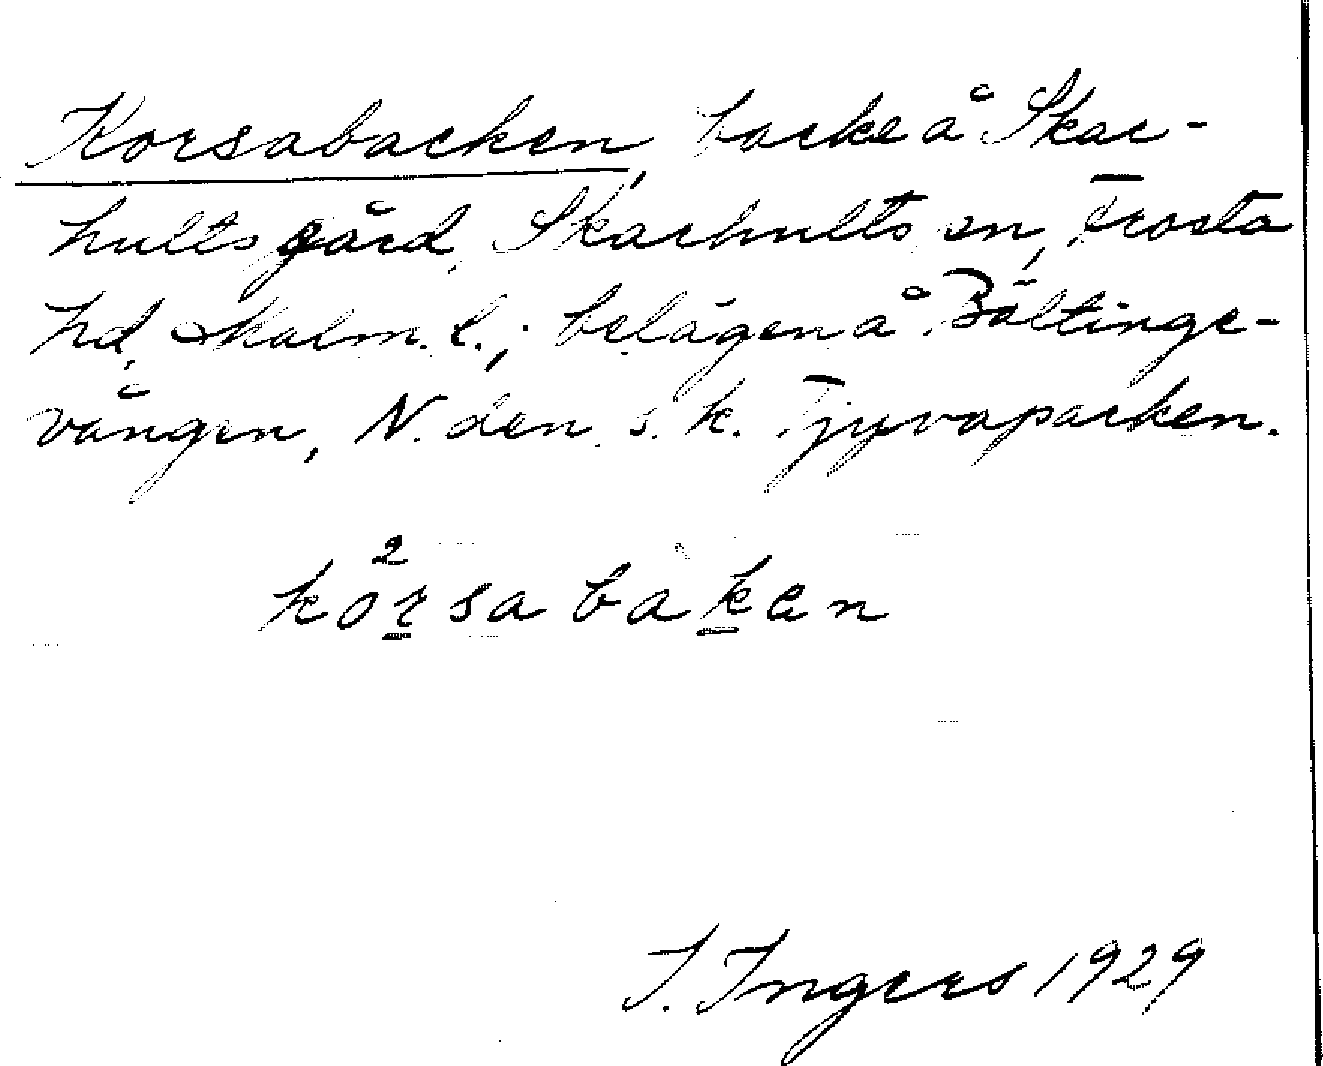 Korsabacken, backe å Skar-
hults gård, Skarhults sn, Frosta
hd, Malm. l.; belägen å Bältinge-
vången, N. den s. k. Tjyvaparken.
ko²rsabaken
I. Ingers 1929